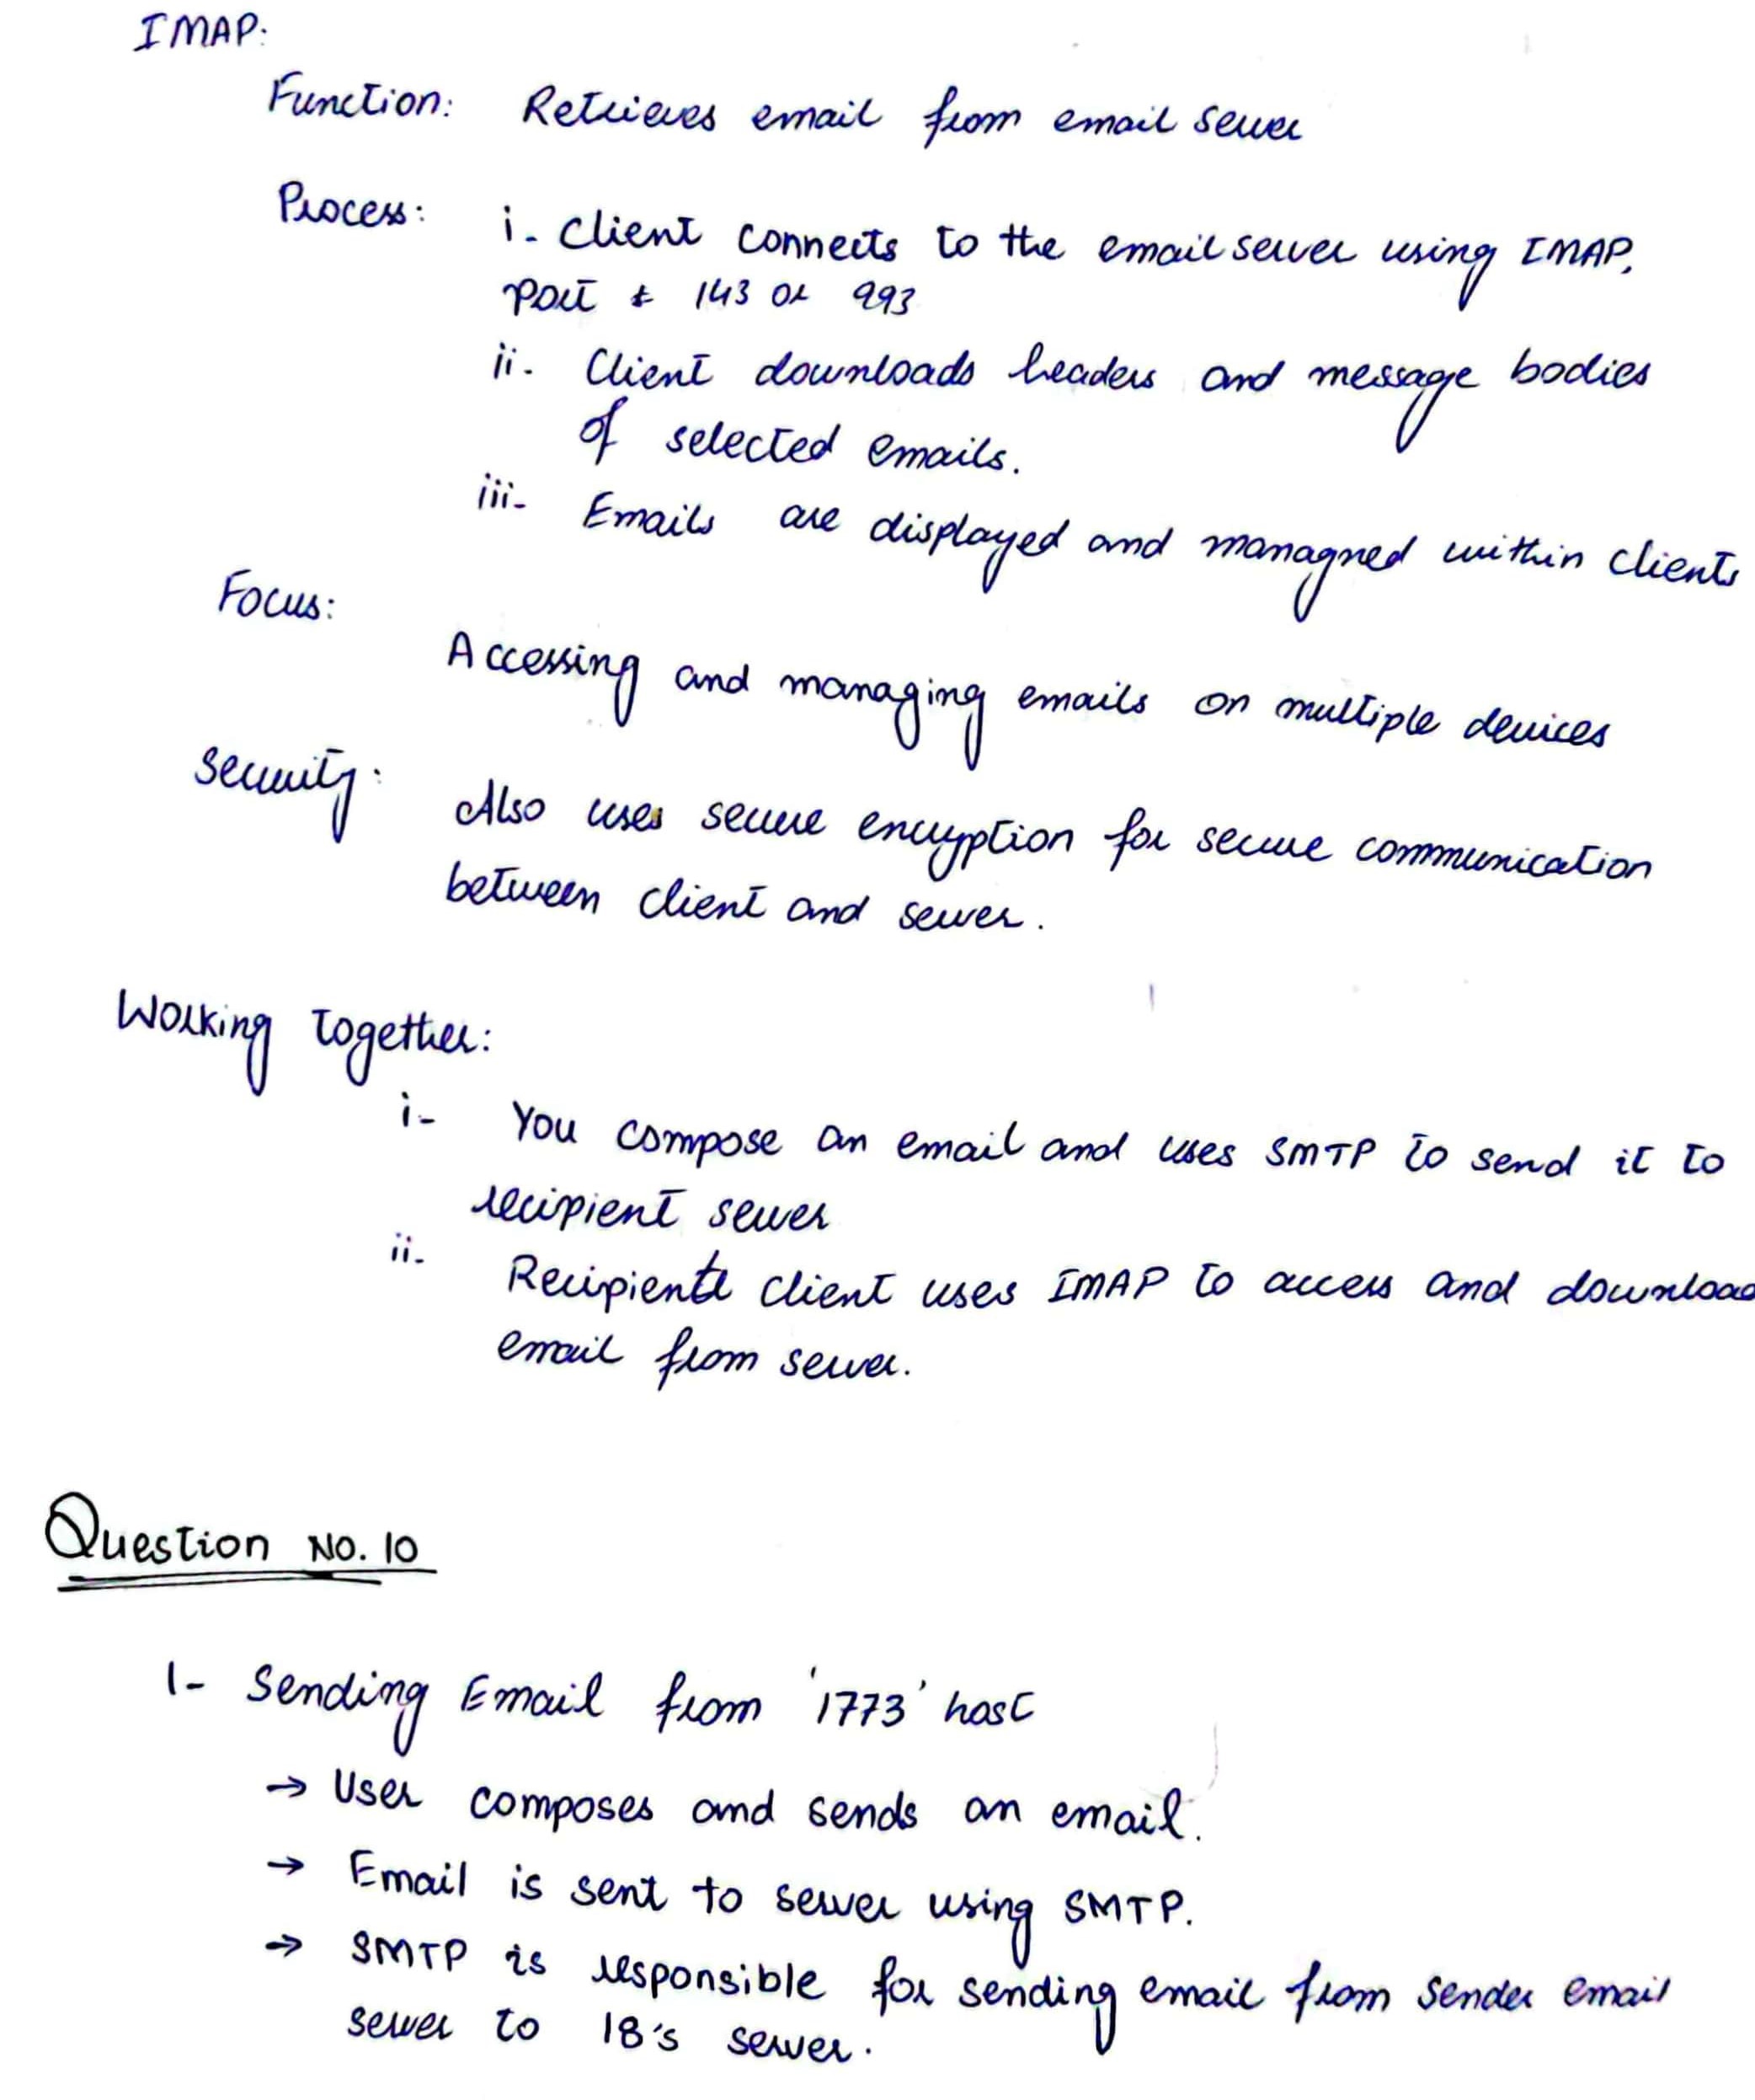 IMAP:
Function: Retrieves email from email server
Process: i- Client connects to the email server using IMAP,
port 143 or 993
ii- Client downloads headers and message bodies
of selected emails.
iii- Emails are displayed and managned within clients
Focus:
Accessing and managing emails on multiple devices
Security:
Also uses secure encryption for secure communication
between client and server.
Working together:
i- You compose an email and uses SMTP to send it to
recipient server
ii- Recipient client uses IMAP to access and download
email from server.
Question NO. 10
1- Sending Email from '1773' host
→ User composes and sends an email.
→ Email is sent to server using SMTP.
→ SMTP is responsible for sending email from sender email
server to 18's server.